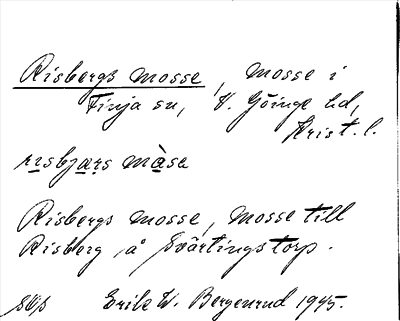 Risbergs mosse, mosse i
Finja sn, V. Göinge hd,
Krist. l.
rısbjaʀs màsa
Risbergs mosse, mosse till
Risberg å Svärtingstorp.
Erik W. Bergenrud 1945.